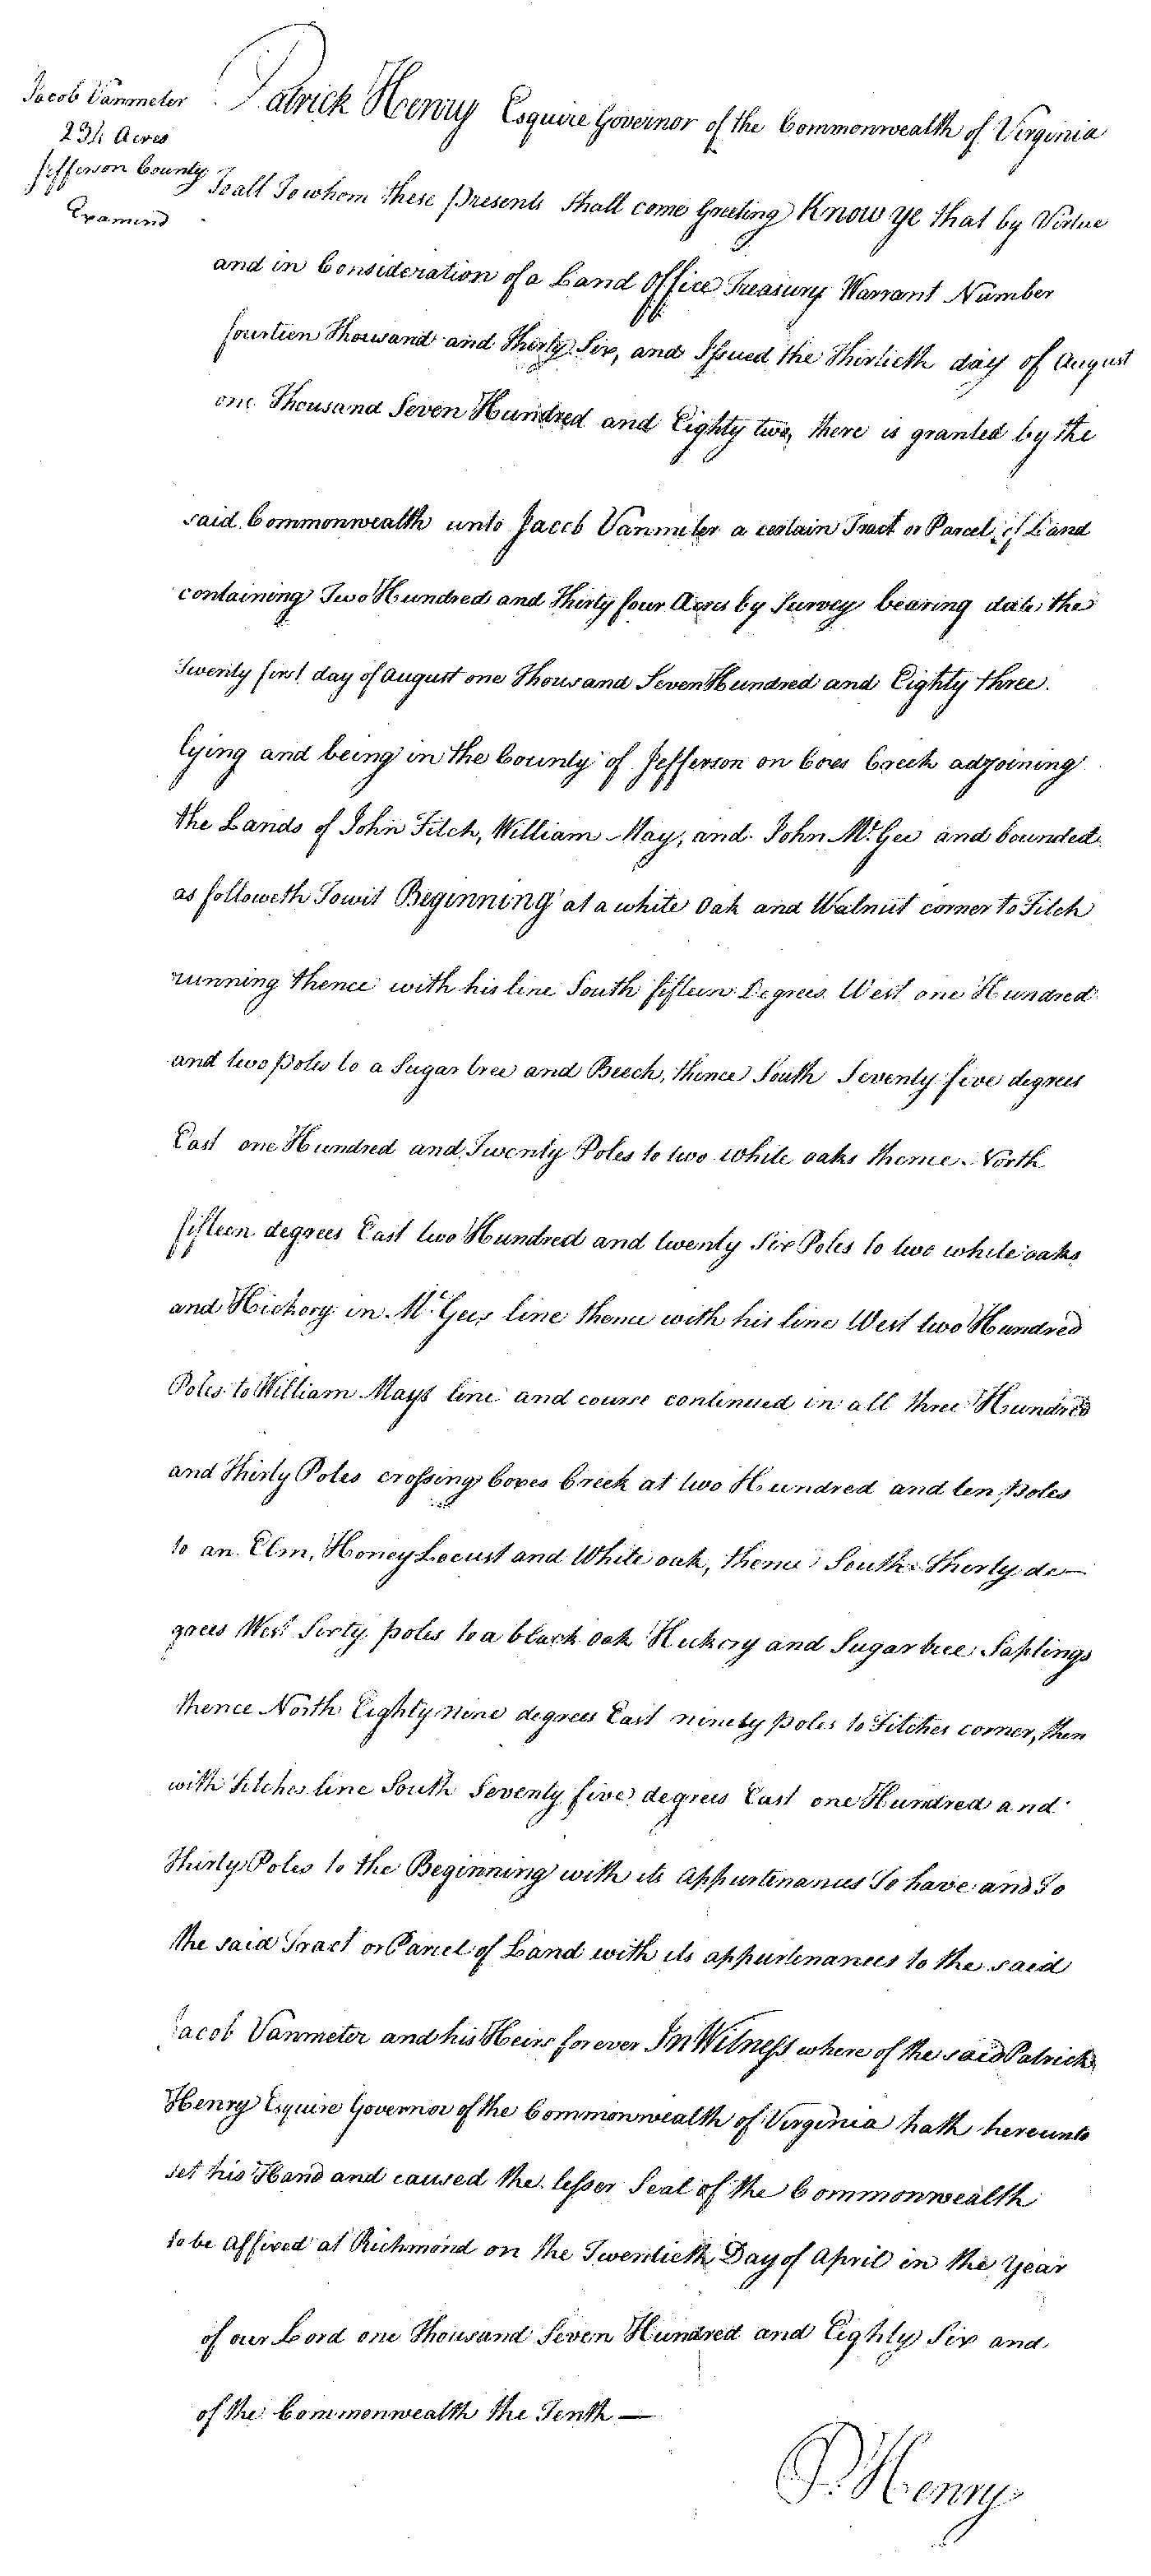 Jacob Vanmeter
234 Acres
Jefferson County
Examind
Patrick Henry Esquire Governor of the Commonwealth of Virginia
To all To whom these presents Shall come Greeting Know ye that by Virtue
and in Consideration of a Land Office Treasury Warrant Number
fourteen Thousand and Thirty Six, and Issued the Thirtieth day of August
one Thousand Seven Hundred and Eighty two, there is granted by the
said Commonwealth unto Jacob Vanmeter a certain Tract or Parcel of Land
containing Two Hundred and Thirty four Acres by Survey bearing date the
Twenty first day of August one Thousand Seven Hundred and Eighty three.
lying and being in the County of Jefferson on Coxes Creek adjoining
the Lands of John Fitch, William May, and John McGee and bounded
as followeth Towit Beginning at a white Oak and Walnut corner to Fitch
running thence with his line South fifteen Degrees West one Hundred
and two poles to a Sugar tree and Beech, thence South Seventy five degrees
East one Hundred and Twenty Poles to two white oaks thence North
fifteen degrees East two Hundred and twenty Six Poles to two white oaks
and Hickory in McGees line thence with his line West two Hundred
Poles to William Mays line and course continued in all three Hundred
and Thirty Poles crossing Coxes Creek at two Hundred and ten poles
to an Elm, Honey Locust and White oak, thence South Thirty de—
grees West Sixty poles to a black oak Hickory and Sugar tree Saplings
thence North Eighty nine degrees East ninety poles to Fitches corner, then
with Fitches line South Seventy five degrees East one Hundred and
Thirty Poles to the Beginning with its Appurtenances To have and To
the said Tract or Parcel of Land with its appurtenances to the said
Jacob Vanmeter and his Heirs forever In Witness where of the said Patrick
Henry Esquire Governor of the Commonwealth of Virginia hath hereunto
set his Hand and caused the lesser Seal of the Commonwealth
to be Affixed at Richmond on the Twentieth Day of April in the Year
of our Lord one Thousand Seven Hundred and Eighty Six and
of the Commonwealth the Tenth —
P. Henry